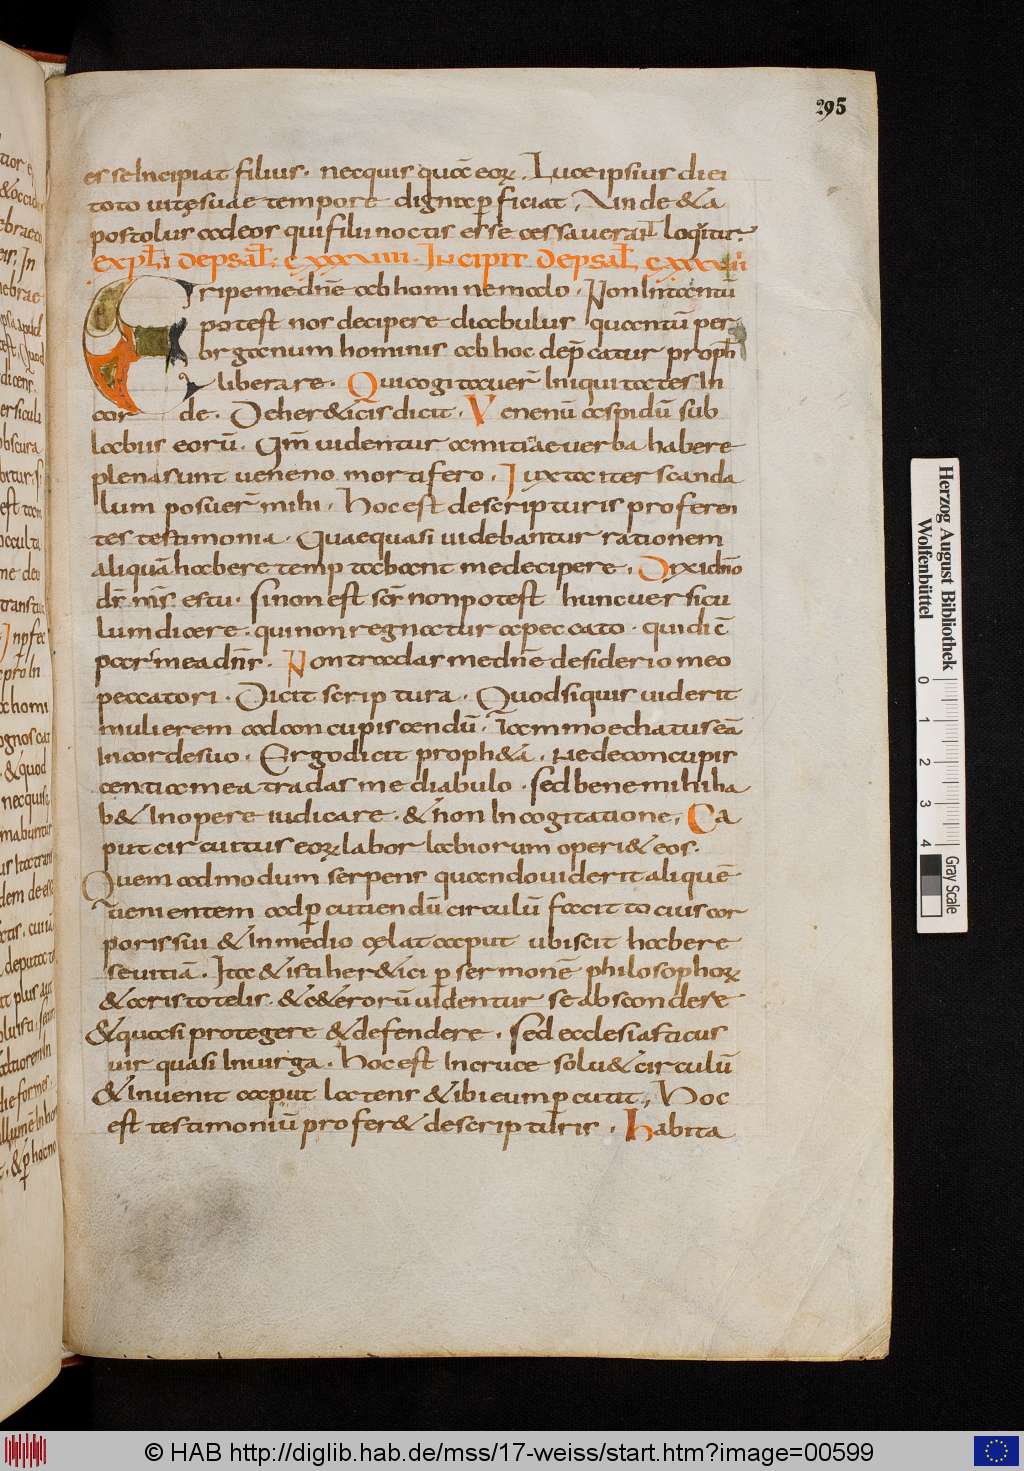 295
esse Incipiat filius. necquis quā eoꝝ. Luce ipsius diei
toto uitę suae tempore dignā ꝑficiat, Unde & a
postolus ad eos qui filii noctis esse cessauerant loquitur.
expl̄ de psal̄. cxxxviiii. Incipit de psal̄.
Eripe me dn̄e ab homine malo. Non In tantū
potest nos decipere diabulus quantū per
organum hominis ab hoc dep̄catur proph
liberare. Qui cogitauer̄ Iniquitates In
corde. De her&icis dicit. Venenū aspidū sub
labiis eorū. Qm̄ uidentur amitiae uerba habere
plena sunt ueneno mortifero. Iuxta iter scanda
lum posuer̄ mihi. Hoc est de scripturis proferen
tes testimonia. Quae quasi uidebantur rationem
aliquā habere temptabant me decipere. Dixi dn̄o
ds̄ ms̄ es tu. si non est sc̄s non potest hunc uersicu
lum dicere. qui non regnatur a peccato. qui dic̄
pars mea dn̄s. Non tradas me dn̄e desiderio meo
peccatori. Dicit scriptura. Quod si quis uiderit
mulierem ad concupiscendū. Iam moechatus eā
In corde suo. Ergo dicit proph&a. Ne de concupis
centia mea tradas me diabulo. sed bene mihi ha
b& In opere iudicare. & non In cogitatione, Ca
put circuitus eoꝝ labor labiorum operi& eos.
Quem admodum serpens quando uiderit aliquē
uenientem ad ꝑcutiendū circulū facit to cius cor
poris sui & In medio cęlat caput ubi scit habere
se uitiā. Ita & isti her&ici ꝑ sermonē philosophoꝝ
& aristotelis. & c&erorū uidentur se abscondere
& quasi protegere & defendere. sed ecclesiasticus
uir quasi In uirga. hoc est In cruce solu& circulū
& Inuenit caput latens & ibi eum ꝑcutit, Hoc
est testimoniū profer& de scripturis. Habita
Herzog August Bibliothek
Wolfenbüttel
0 1 2 3 4
Gray Scale
© HAB http://diglib.hab.de/mss/17-weiss/start.htm?image=00599